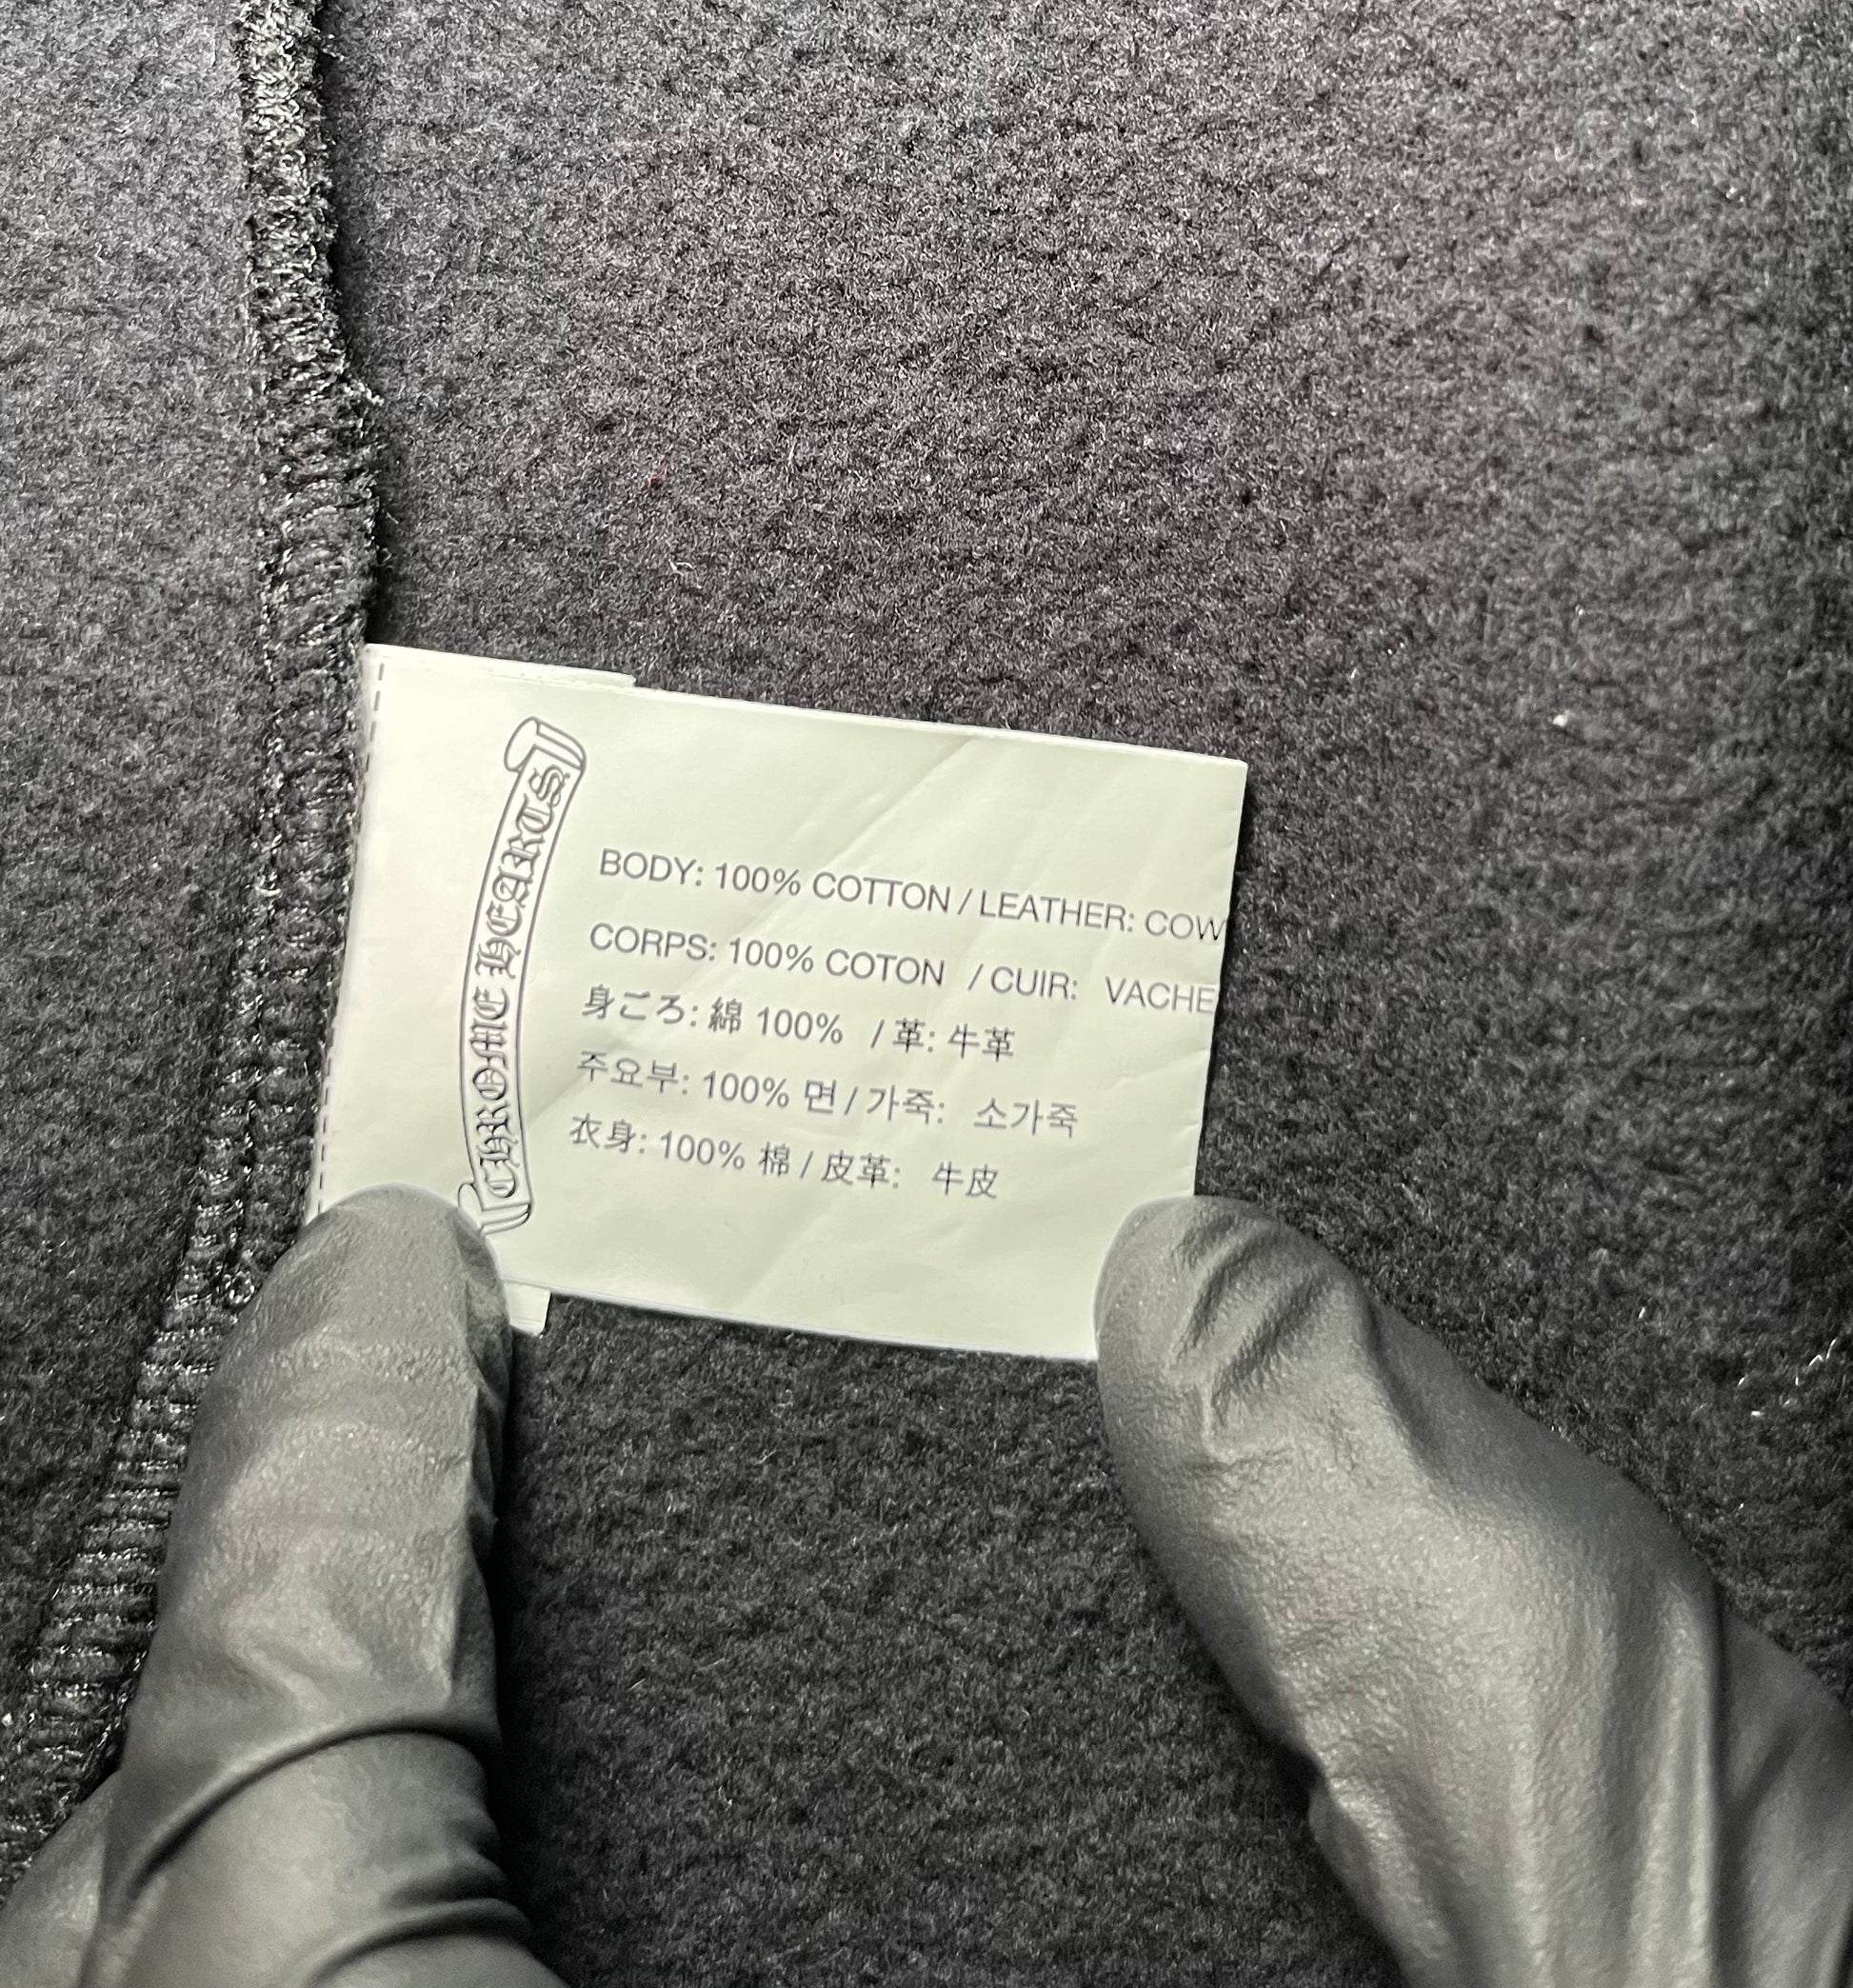 CHROME HEARTS
BODY: 100% COTTON / LEATHER: COW
CORPS: 100% COTON / CUIR: VACHE
身ごろ: 綿 100% / 革: 牛革
주요부: 100% 면 / 가죽: 소가죽
衣身: 100% 棉 / 皮革: 牛皮